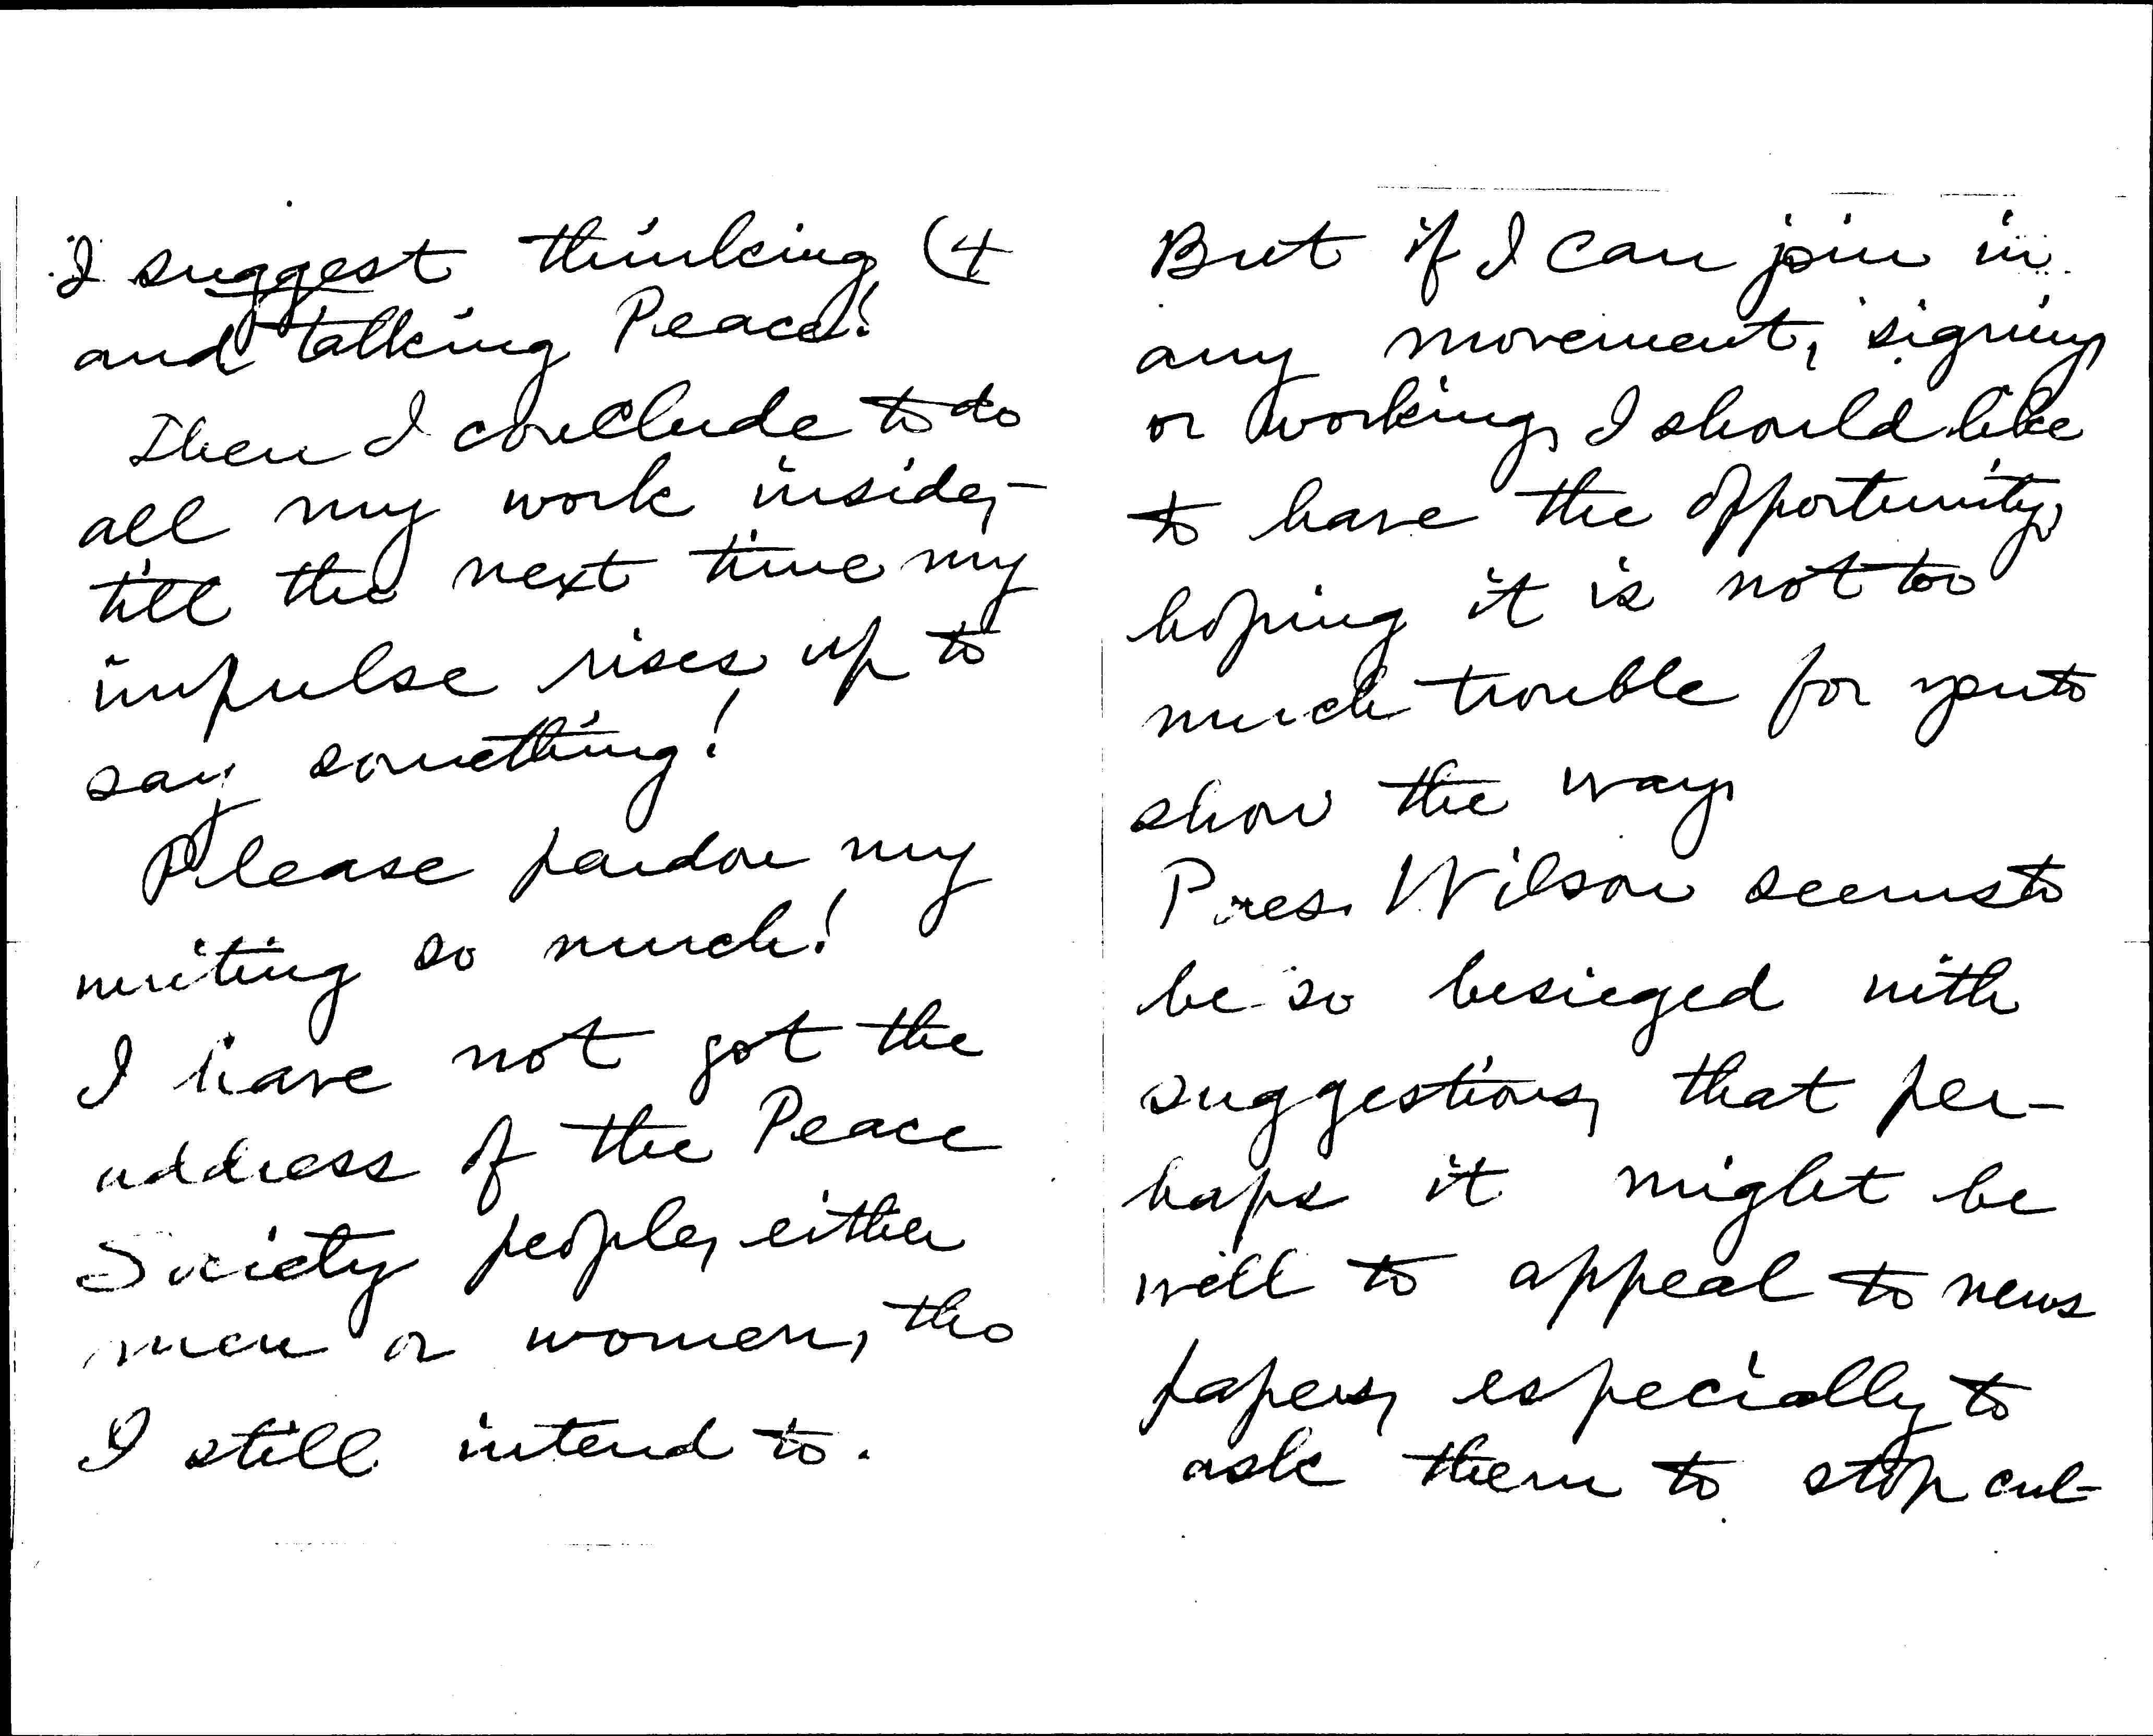 I suggest thinking (4
and talking Peace!
Then I conclude to do
all my work inside,-
till the next time my
impulse rises up to
say something!
Please pardon my
writing so much!
I have not got the
address of the Peace
Society people, either
men or women, tho
I still intend to.
But if I can join in
any movement, signing
or working, I should like
to have the opportunity,
hoping it is not too
much trouble for you to
show the way.
Pres. Wilson seems to
be so besieged with
suggestions, that per-
haps it might be
well to appeal to news
papers, especially to
ask them to stop cul-